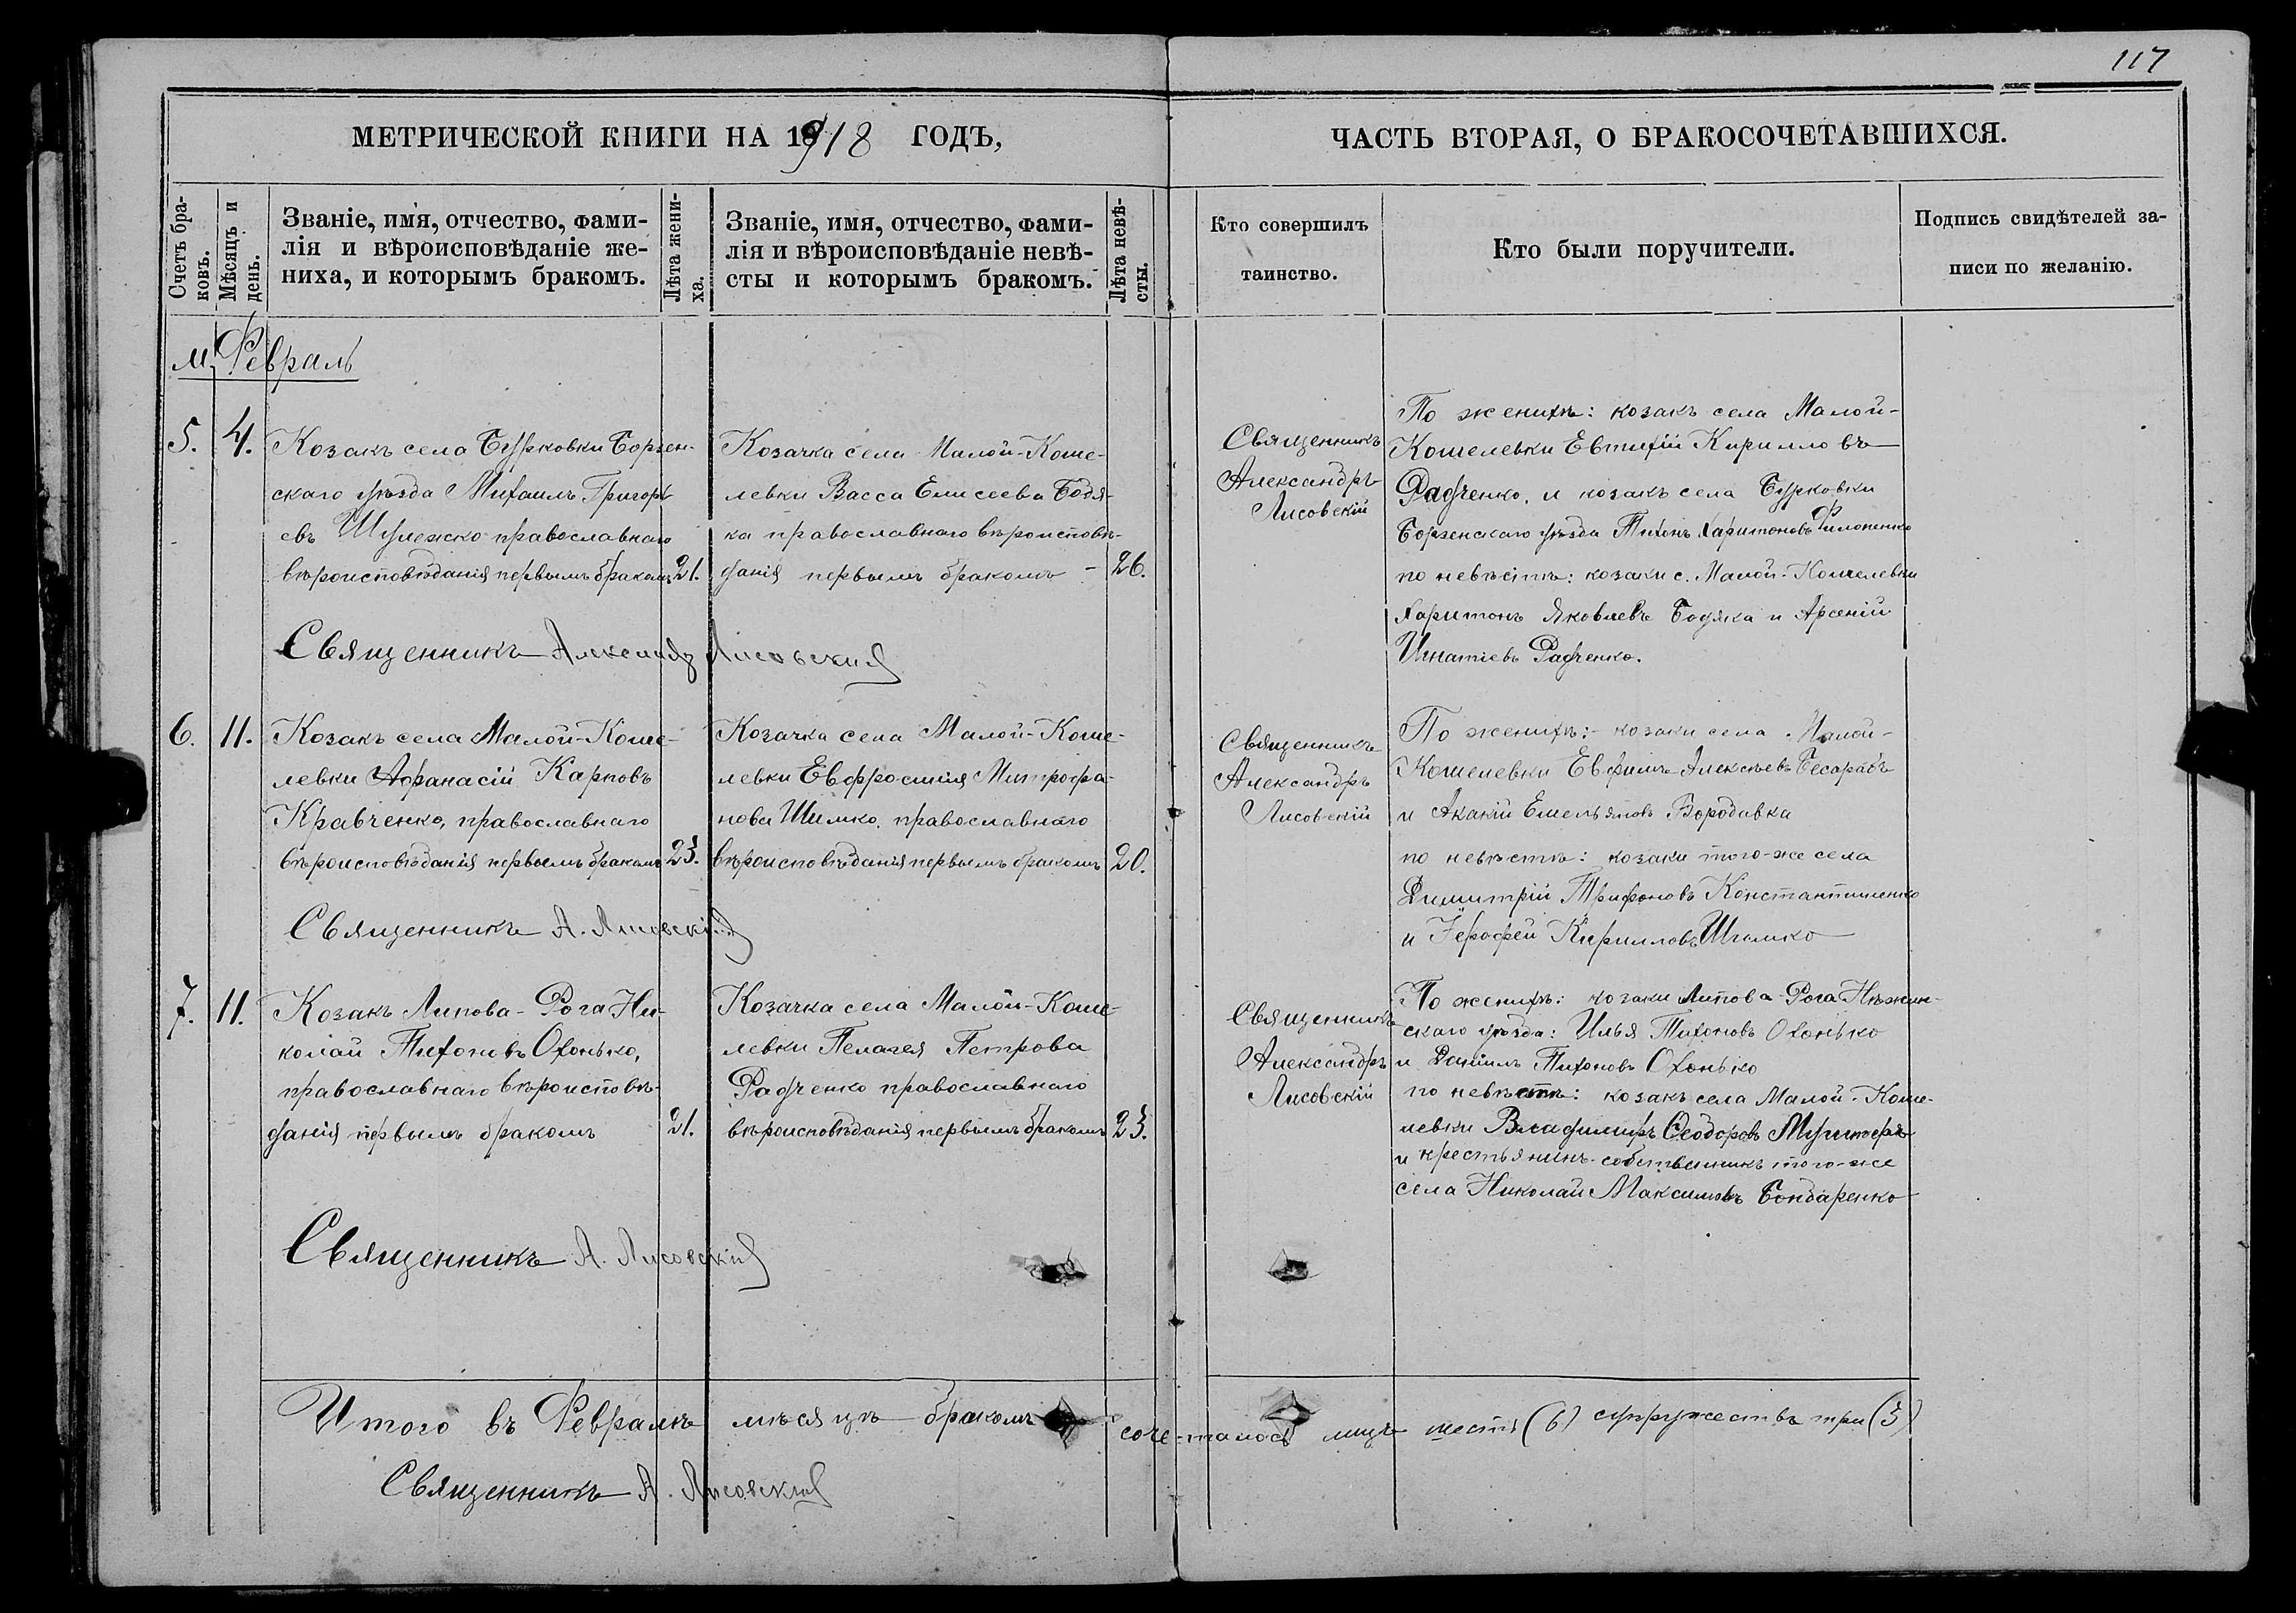 117
МЕТРИЧЕСКОЙ КНИГИ НА 1918 ГОДЪ,
ЧАСТЬ ВТОРАЯ, О БРАКОСОЧЕТАВШИХСЯ.
Счетъ бра-
ковъ.
Мѣсяцъ и
день.
Званіе, имя, отчество, фами-
лія и вѣроисповѣданіе же-
ниха, и которымъ бракомъ.
Лѣта жени-
ха.
Званіе, имя, отчество, фами-
лія и вѣроисповѣданіе невѣ-
сты и которымъ бракомъ.
Лѣта невѣ-
сты.
Кто совершилъ
таинство.
Кто были поручители.
Подпись свидѣтелей за-
писи по желанію.
м. Февраль
5. 4.
Козакъ села Бурковки Борзен-
скаго уѣзда Михаилъ Григорь-
евъ Шулежко православнаго
вѣроисповѣданія первымъ бракомъ 21.
Козачка села Малой-Коше-
левки Васса Елисеева Бодя-
ка православнаго вѣроисповѣ-
данія первымъ бракомъ - 26.
Священникъ
Александръ
Лисовскій
По женихѣ: козакъ села Малой-
Кошелевки Евтихій Кирилловъ
Радченко, и козакъ села Бурковки
Борзенскаго уѣзда Тихонъ Харитоновъ Филоненко
по невѣстѣ: козаки с. Малой-Кошелевки
Харитонъ Яковлевъ Бодяка и Арсеній
Игнатіевъ Радченко.
Священникъ Александр Лисовскій
6. 11.
Козакъ села Малой-Коше-
левки Афанасій Карповъ
Кравченко, православнаго
вѣроисповѣданія первымъ бракомъ 23.
Козачка села Малой-Коше-
левки Евфросинія Митрофа-
нова Шимко, православнаго
вѣроисповѣданія первымъ бракомъ 20.
Священникъ
Александръ
Лисовскій
По женихѣ:- козаки села Малой-
Кошелевки Евфимъ Алексѣевъ Бесарабъ
и Акакій Емельяновъ Бородавка
по невѣстѣ: козаки того-же села
Димитрій Трифоновъ Константиненко
и Іерофей Кирилловъ Шимко
Священникъ А. Лисовскій
7. 11.
Козакъ Липова-Рога Ни-
колай Тихоновъ Охонько,
православнаго вѣроисповѣ-
данія первымъ бракомъ 21.
Козачка села Малой-Коше-
левки Пелагея Петрова
Радченко православнаго
вѣроисповѣданія первымъ бракомъ 23.
Священникъ
Александръ
Лисовскій
По женихѣ: козаки Липова-Рога Нѣжин-
скаго уѣзда: Илья Тихоновъ Охонько
и Даніилъ Тихоновъ Охонько
по невѣстѣ: козакъ села Малой-Коше-
левки Владимиръ Ѳеодоровъ
и крестьянинъ-собственникъ того-же
села Николай Максимовъ Бондаренко
Священникъ А. Лисовскій
Итого въ Февралѣ мѣсяцѣ бракомъ сочеталось лицъ шесть (6) супружествъ три (3)
Священникъ А. Лисовскій